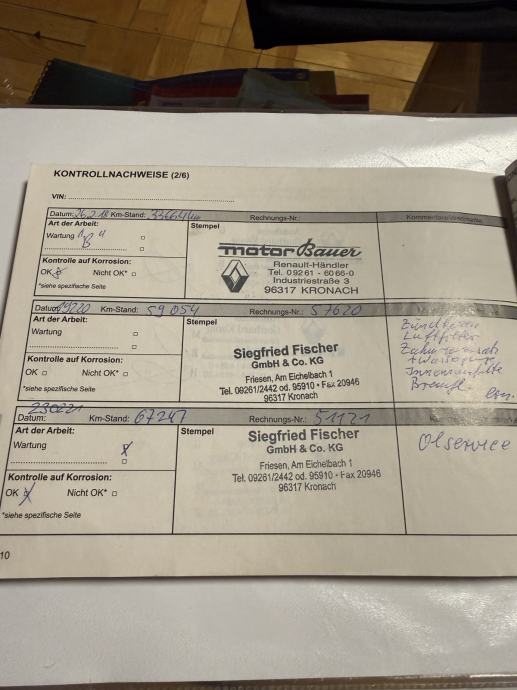 KONTROLLNACHWEISE (2/6)
VIN:
Datum: 26.2.18 Km-Stand: Rechnungs-Nr.:
Art der Arbeit:
Wartung "B"
Kontrolle auf Korrosion:
OK Nicht OK*
*siehe spezifische Seite
Stempel
motor Bauer
Renault-Händler
Tel. 09261 - 6066-0
Industriestraße 3
96317 KRONACH
Datum: Km-Stand: 59054 Rechnungs-Nr.: 51620
Art der Arbeit:
Wartung
Kontrolle auf Korrosion:
OK Nicht OK*
*siehe spezifische Seite
Stempel
Siegfried Fischer
GmbH & Co. KG
Friesen, Am Eichelbach 1
Tel. 09261/2442 od. 95910 - Fax 20946
96317 Kronach
Zündkerzen
Luftfilter
Datum: 230221 Km-Stand: 67247 Rechnungs-Nr.: 51121
Art der Arbeit:
Wartung X
Kontrolle auf Korrosion:
OK X Nicht OK*
*siehe spezifische Seite
Stempel
Siegfried Fischer
GmbH & Co. KG
Friesen, Am Eichelbach 1
Tel. 09261/2442 od. 95910 - Fax 20946
96317 Kronach
Ölservice
10